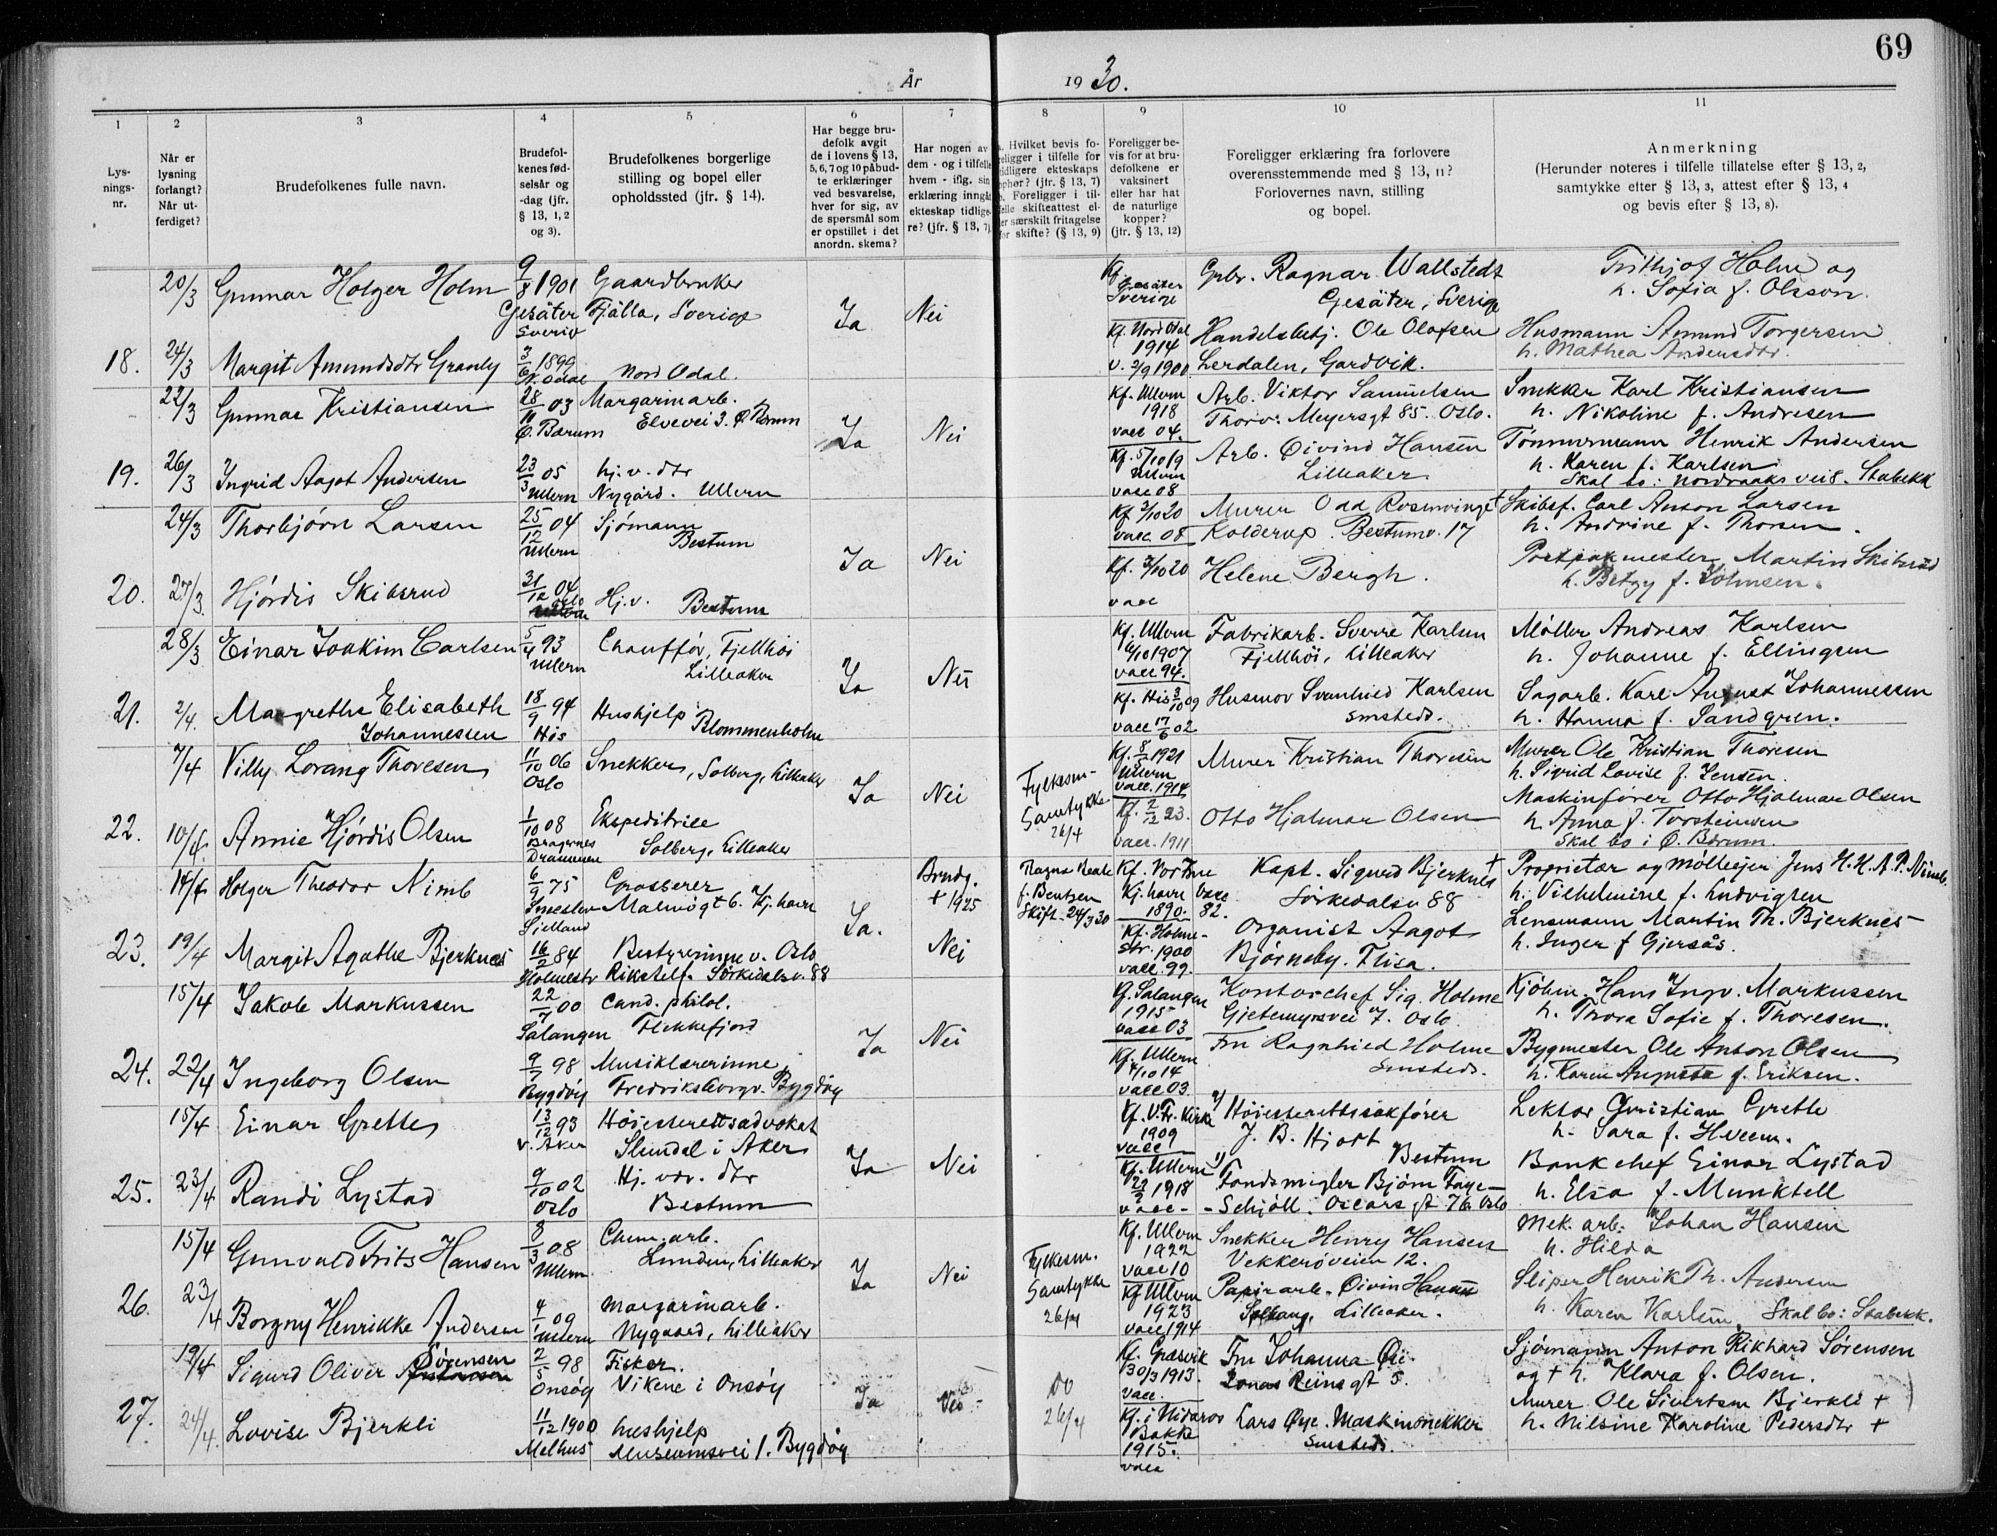 69
År 1930.
1
2
3
4
5
6
7
8
9
10
11
Lys-
nings-
nr.
Når er
lysning
forlangt?
Når ut-
ferdiget?
Brudefolkenes fulle navn.
Brudefol-
kenes fød-
selsår og
-dag (jfr.
§ 13, 1, 2
og 3).
Brudefolkenes borgerlige
stilling og bopel eller
opholdssted (jfr. § 14).
Har begge bru-
defolk avgit
de i lovens § 13,
5, 6, 7 og 10 påbud-
te erklæringer
ved besvarelse,
hver for sig, av
de spørsmål som
er opstillet i det
anordn. skema?
Har nogen av
dem - og i tilfelle
hvem - iflg. sin
erklæring inngåt
ekteskap tidlige-
re? (jfr. § 13, 7).
Hvilket bevis fo-
religger i tilfelle for
tidligere ekteskaps
ophør? (jfr. § 13, 7)
b. Foreligger i til-
felle skifteattest el-
ler særskilt fritagelse
for skifte? (§ 13, 9)
Foreligger be-
vis for at bru-
defolkene er
vaksinert
eller har hat
de naturlige
kopper?
(jfr. § 13, 12)
Foreligger erklæring fra forlovere
overensstemmende med § 13, 11?
Forlovernes navn, stilling
og bopel.
Anmerkning
(Herunder noteres i tilfelle tillatelse efter § 13, 2,
samtykke efter § 13, 3, attest efter § 13, 4
og bevis efter § 13, 8).
18.
20/3
Gunnar Holger Holm
9/8 1901
Gesäter
Sverig
Gaardbruker
Fjälla, Sverige
Ja
Nei
Kf.
Gesäter
Sverige
Gbr. Ragnar Wallstedt
Gesäter, Sverige
Frithjof Holm og
h. Sofia f. Olsson.
24/3
Margit Amundsdtr Granly
3/6 1899
N. Odal
Nord Odal.
Kf. Nord Odal
1914
v. 2/9 1900
Handelsbetj. Ole Olafsen
Lerdalen, Gardvik.
Husmann Amund Torgersen
h. Mathea Andersdtr.
19.
22/3
Gunnar Kristiansen
28/11 03
Ø. Bærum
Margarinarb.
Elvevei 3. Ø. Bærum
Ja
Nei
Kf. Ullern
1918
vacc 04.
Arb. Viktor Samuelsen
Thorv. Meyersgt 85. Oslo.
Snekker Karl Kristiansen
h. Nikoline f. Andresen
26/3
Ingrid Aagot Andersen
23/3 05
Ullern
hj. v. dtr
Nygård. Ullern
Kf. 5/10 19
Ullern
vacc 08
Arb. Øivind Hansen
Lilleaker
Tømmermann Henrik Andersen
h. Karen f. Karlsen
Skal bo: Nordraaks vei 8. Stabekk
20.
24/3
Thorbjørn Larsen
25/12 04
Ullern
Sjømann
Bestum
Ja
Nei
Kf 3/10 20
vacc. 08
Murer Odd Rosenvinge
Kolderup. Bestumv. 17
Skibsf. Carl Anton Larsen
h. Andrine f. Thorsen.
27/3.
Hjördis Skibsrud
31/12 04
Oslo
Hj.v. Bestum
Kf. 3/10 20
vacc
Helene Bergh.
Postpakmester Martin Skibsrud
h. Betzy f. Johnsen.
21.
28/3
Einar Joakim Carlsen
5/4 93
Ullern
Chauffør, Fjellhöi
Lilleaker
Ja
Nei
Kf. Ullern
6/10 1907
vacc 94.
Fabrikarb. Sverre Karlsen
Fjellhöi, Lilleaker
Møller Andreas Karlsen
h. Johanne f. Ellingsen
2/4.
Margrethe Elisabeth
Johannessen
18/9 94
His
Hushjelp
Blommenholm
Kf. His 3/10 09
vacc 17/6 02
Husmor Svanhild Karlsen
smsteds.
Sagarb. Karl August Johannessen
h. Hanna f. Sandgren.
22.
7/4
Villy Lorang Thoresen
11/10 06
Oslo
Snekker, Solberg, Lilleaker
Ja
Nei
Fylkesm-
Samtykke
26/4
Kf. 8/5 1921
Ullern
vacc. 1914
Murer Kristian Thoresen
Murer Ole Kristian Thoresen
h. Sigrid Lovise f. Jensen.
10/4.
Annie Hjördis Olsen
1/10 08
Bragernes
Drammen
Ekspeditrice
Solberg, Lilleaker
Kf. 2/12 23.
vacc. 1911
Otto Hjalmar Olsen
Maskinfører Otto Hjalmar Olsen
h. Anna f. Torsteinsen
Skal bo i Ø. Bærum.
23.
14/4
Holger Theodor Nimb
6/9 75
Sjelland
Grosserer
Malmøgt 6. Kj.havn
Ja.
Brudg.
+ 1925
f. Bentzen
Skift. 24/3 30
Kj.havn
1890.
vacc
82.
Kapt. Sigurd Bjerknes
Sörkedalsv 88
Proprietær og mølleejer Jens H. H. A. P. Nimb.
h. Vilhelmine f. Ludvigsen
19/4
Margit Agathe Bjerknes
16/2 84
Holmestr
Bestyrerinne v. Oslo
Rikstelf. Sörkedalsv. 88
Nei
Kf. Holme-
str. 1900
vacc. 99.
Organist Aagot
Bjørneby. Flisa.
Lensmann Martin Th. Bjerknes
h. Inger f Gjersås.
24.
15/4
Jakob Markussen
22/7 00
Salangen
Cand. philol.
Flekkefjord
Ja
Nei
Kf. Salangen
1915
vacc 03
Kontorchef Sig. Holme
Gjetemyrsvei 7. Oslo
Kjøbm. Hans Ingv. Markussen
h. Thora Sofie f. Thoresen.
22/4
Ingeborg Olsen
9/7 98
Bygdöy
Musiklærerinne
Fredriksborgv. Bygdöy
Kf. Ullern
4/10 14
vacc 03
Fru Ragnhild Holme
Smsteds.
Bygmester Ole Anton Olsen
h. Karen Augusta f. Eriksen.
25.
15/4
Einar Grette
13/12 93
v. Aker
Höiesterettsadvokat
Slemdal i Aker
Ja
Nei
Kf. V. Fr. Kirke
1909
vacc
2) Høiesterettssakfører
J. B. Hjort
Bestum
Lektor Christian Grette
h. Sara f. Hveem.
23/4
Randi Lystad
9/10 02
Oslo
Hj. vær. dtr
Bestum
Kf. Ullern
1918
vacc -
1) Fondsmegler Bjørn Faye-
- Schjöll. Oscars gt 76 Oslo
Bankchef Einar Lystad
h. Elsa f. Munktell
26.
15/4
Gunvald Frits Hansen
8/3 08
Ullern
Chem. arb.
Lunden, Lilleaker
Ja
Nei
Fylkesm.
Samtykke
26/4
Kf. Ullern
1922
vacc 10
Snekker Henry Hansen
Vekkerøveien 12.
Mek. arb. Johan Hansen
h. Hilda
23/4
Borgny Henrikke Andersen
4/1 09
Ullern
Margarinarb.
Nygaard, Lilleaker
Kf Ullern
1923
vacc 1914
Papirarb. Øivin Hansen
Lilleaker.
Sliper Henrik Th. Andersen
h. Karen Karlsen. Skal bo: Stabekk.
27.
19/4
Sigurd Oliver Sørensen
2/5 98
Onsøy
Fisker.
Vikene i Onsøy
Ja
Nei
26/4
Kf. Græsvik
30/3 1913.
vacc.
Fru Johanna Øie
Jonas Reins gt 5.
Sjømann Anton Rikhard Sørensen
og + h. Klara f. Olsen.
24/4.
Lovise Bjerkli
11/12 1900
Melhus
hushjelp
Museumsvei 1. Bygdöy
Kf. i Nidaros
Bakke
1915.
vacc
Lars Øye. Maskinsnekker
Smsteds.
Murer Ole Sivertsen Bjerkli +
h. Nilsine Karoline Pedersdtr +